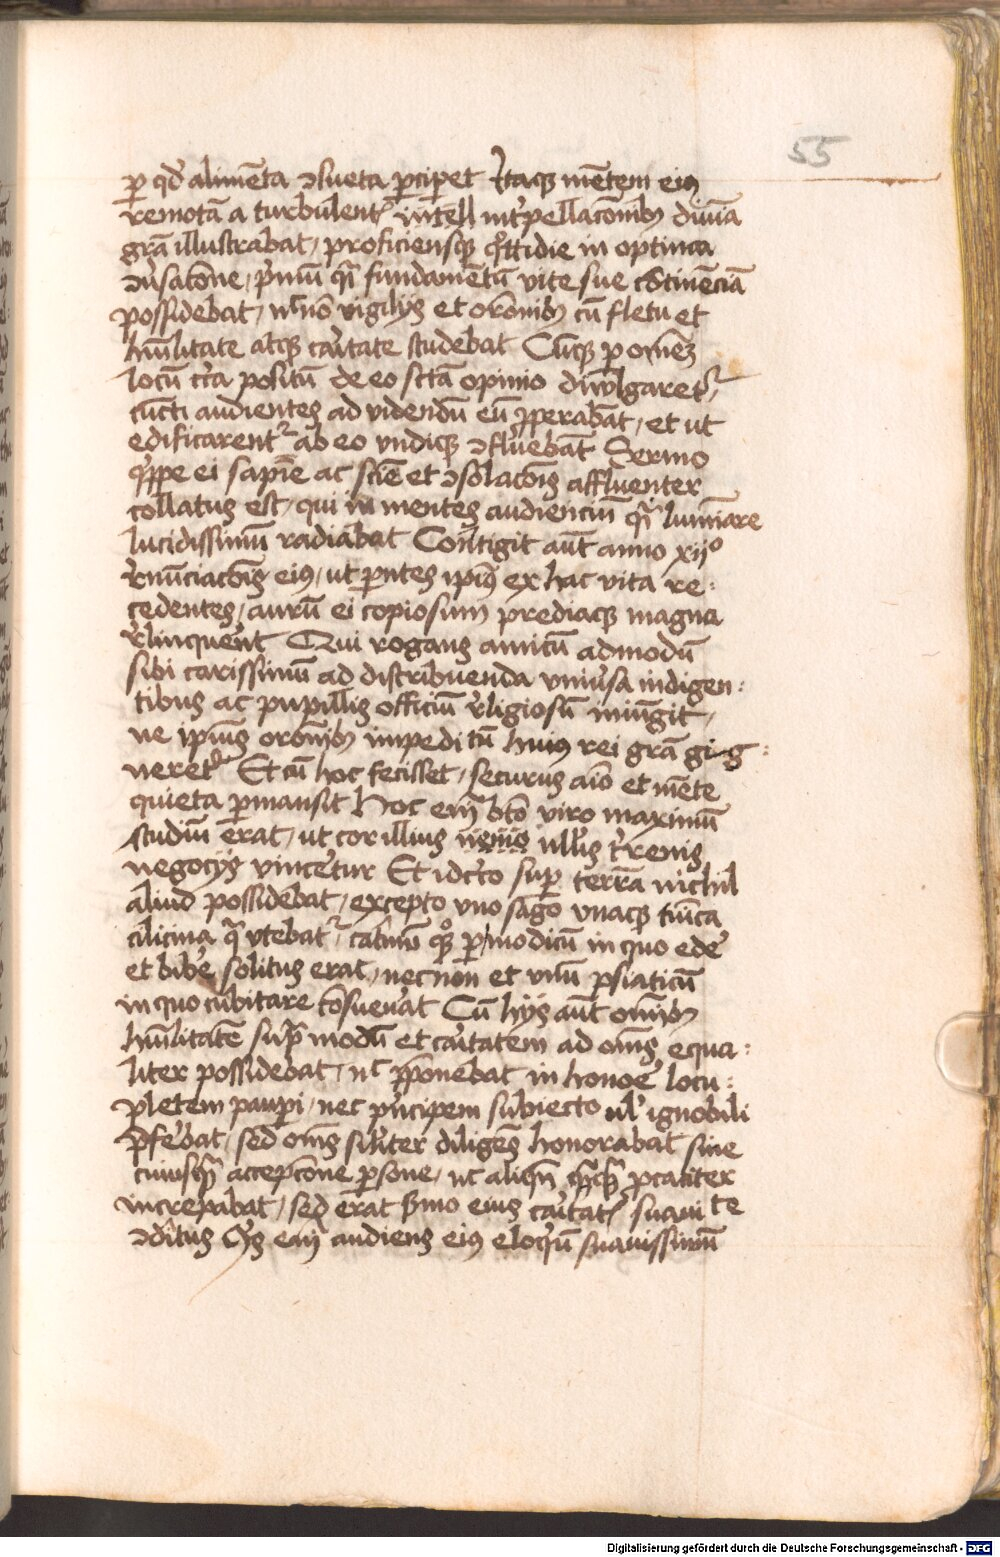 55
p qd alimēta ɔsueta p̱cipet Itaq mētem eiꝰ
remotā a turbulent inꞇ̉pellacōnibꝫ diuīa
grā illustrabat / proficiensq cottidie in optima
ɔu̓sacōne / p̓mū qi fundamētū vite sue cōtinēciā
possidebat / nōnō vigilijs et orōnibꝫ cū fletu et
hūilitate atq caritate studebat Cūq p omnē
locū cc̓a positū de eo sctā opinio diwlgaret̉
cūcti audientes ad videndū eū p̱perabāt / et ut
edificarent̉ ab eo vndiq ɔfluebāt Sermo
q̓ppe ei sapīe ac scīe et ɔsolacōis affluenter
collatus est / qui in mentes audienciū q̓i lumīare
lucidissimū radiabat Contigit aūt anno xijo
r̓nūciacōis eiꝰ / ut p̱ntes ip̄iꝰ ex hac vita re:
cedentes / aurū ei copiosum prediaq magna
r̓linquerent Qui rogans amicū admodū
sibi carissimū ad distribuenda vniu̓sa indigen:
tibus ac pupillis officiū r̓ligiosū iniūgit /
ne ip̄ius orōnibꝫ impeditū huiꝰ rei grā gig:
neret̉ Et cū hoc fecisset / securus aīo et mēte
quieta p̱mansit Hoc em̄ bto viro maximū
studiū erat / ut cor illius ullis t̓renis
negocijs vincetur Et idcto sup terrā nichil
aliud possidebat / excepto vno sago vnaq tūica
cilicina q̄ vtebat̉ / catinū q̊ꝫ p̱modicū in quo ede̓
et bibe̓ solitus erat / necnon et vnū psiaticū
in quo cubitare cōsueu̓at Cū hijs aūt omībꝫ
hūilitatē sup̄ modū et caritatem ad om̄s equa:
liter possidebat / nc p̄ponebat in honoe̓ locu:
pletem paup̱i / nec p̓ncipem subiecto ul̓ ignobili
p̄fe̓bat / sed om̄s silīter diligēs honorabat sine
cuiusq̄ accepcōne p̱sone / nc aliqn̄ peccāter
increpabat / sed erat s̓mo eius caritat̉ suauite
ɔditus Q̓s em̄ audiens eiꝰ eloq̓ū suauissimū
Digitalisierung gefördert durch die Deutsche Forschungsgemeinschaft - DFG